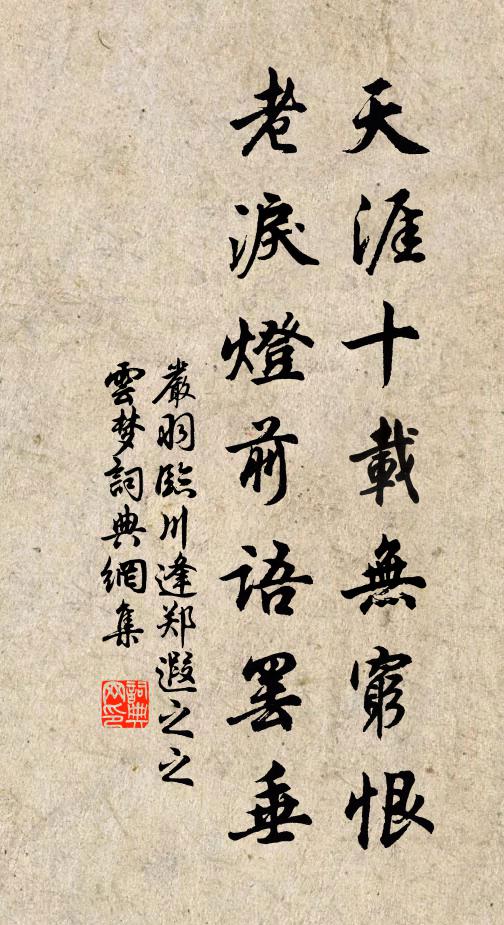 天涯十載無窮恨
老淚燈前語罷垂
嚴羽臨川逢郑遐之之
雲梦詞典網集
詞典网印